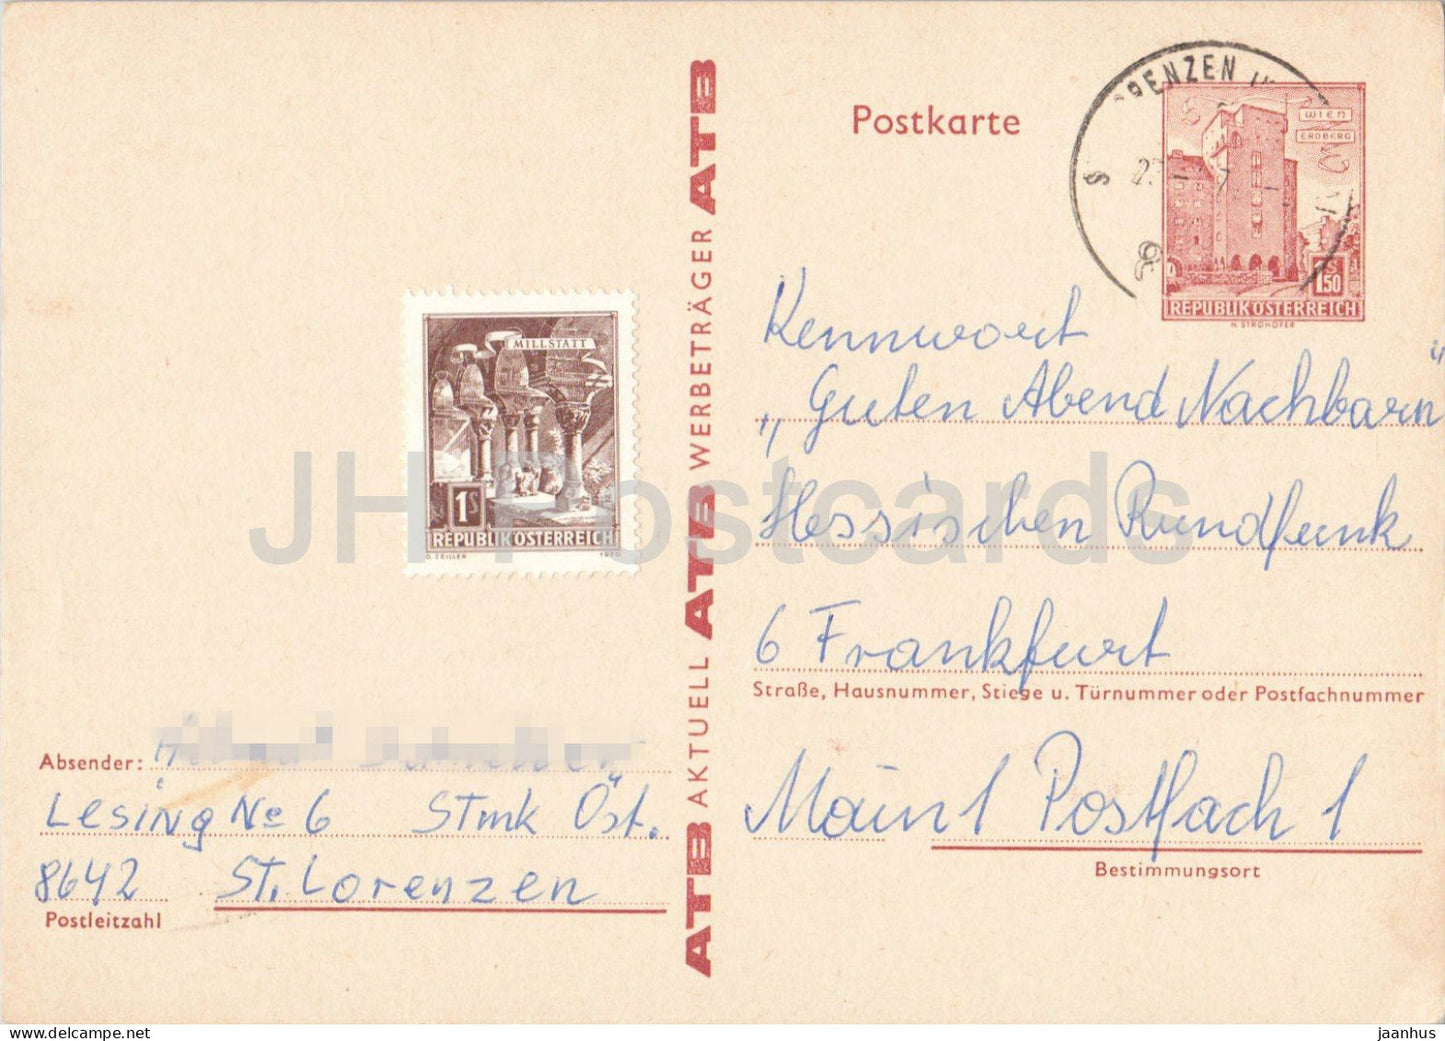 Postkarte
RENZEN
S
8
WIEN
ERDBERG
S
1.50
REPUBLIK ÖSTERREICH
H. STROHOFER
MILLSTATT
1S
REPUBLIK ÖSTERREICH
O. ZEILLER 1970
ATB AKTUELL ATB WERBETRÄGER ATB
Kennwort
„Guten Abend Nachbarn"
Hessischen Rundfunk
6 Frankfurt
Straße, Hausnummer, Stiege u. Türnummer oder Postfachnummer
Main 1 Postfach 1
Bestimmungsort
Absender:
Lesing No 6 Stmk Öst.
8642 St. Lorenzen
Postleitzahl
JH Postcards
www.delcampe.net
jaanhus